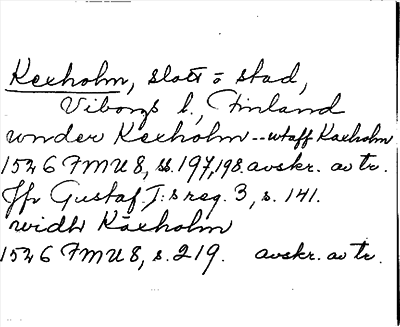 Kexholm, slott o stad,
Viborgs l., Finland
wnder Kexholm -- wtaff Kaxholm
1526 FMU 8, ss. 197, 198. avskr. av tr.
Jfr Gustaf I:s reg. 3, s. 141.
widh Käxholm
1526 FMU 8, s. 219. avskr. av tr.